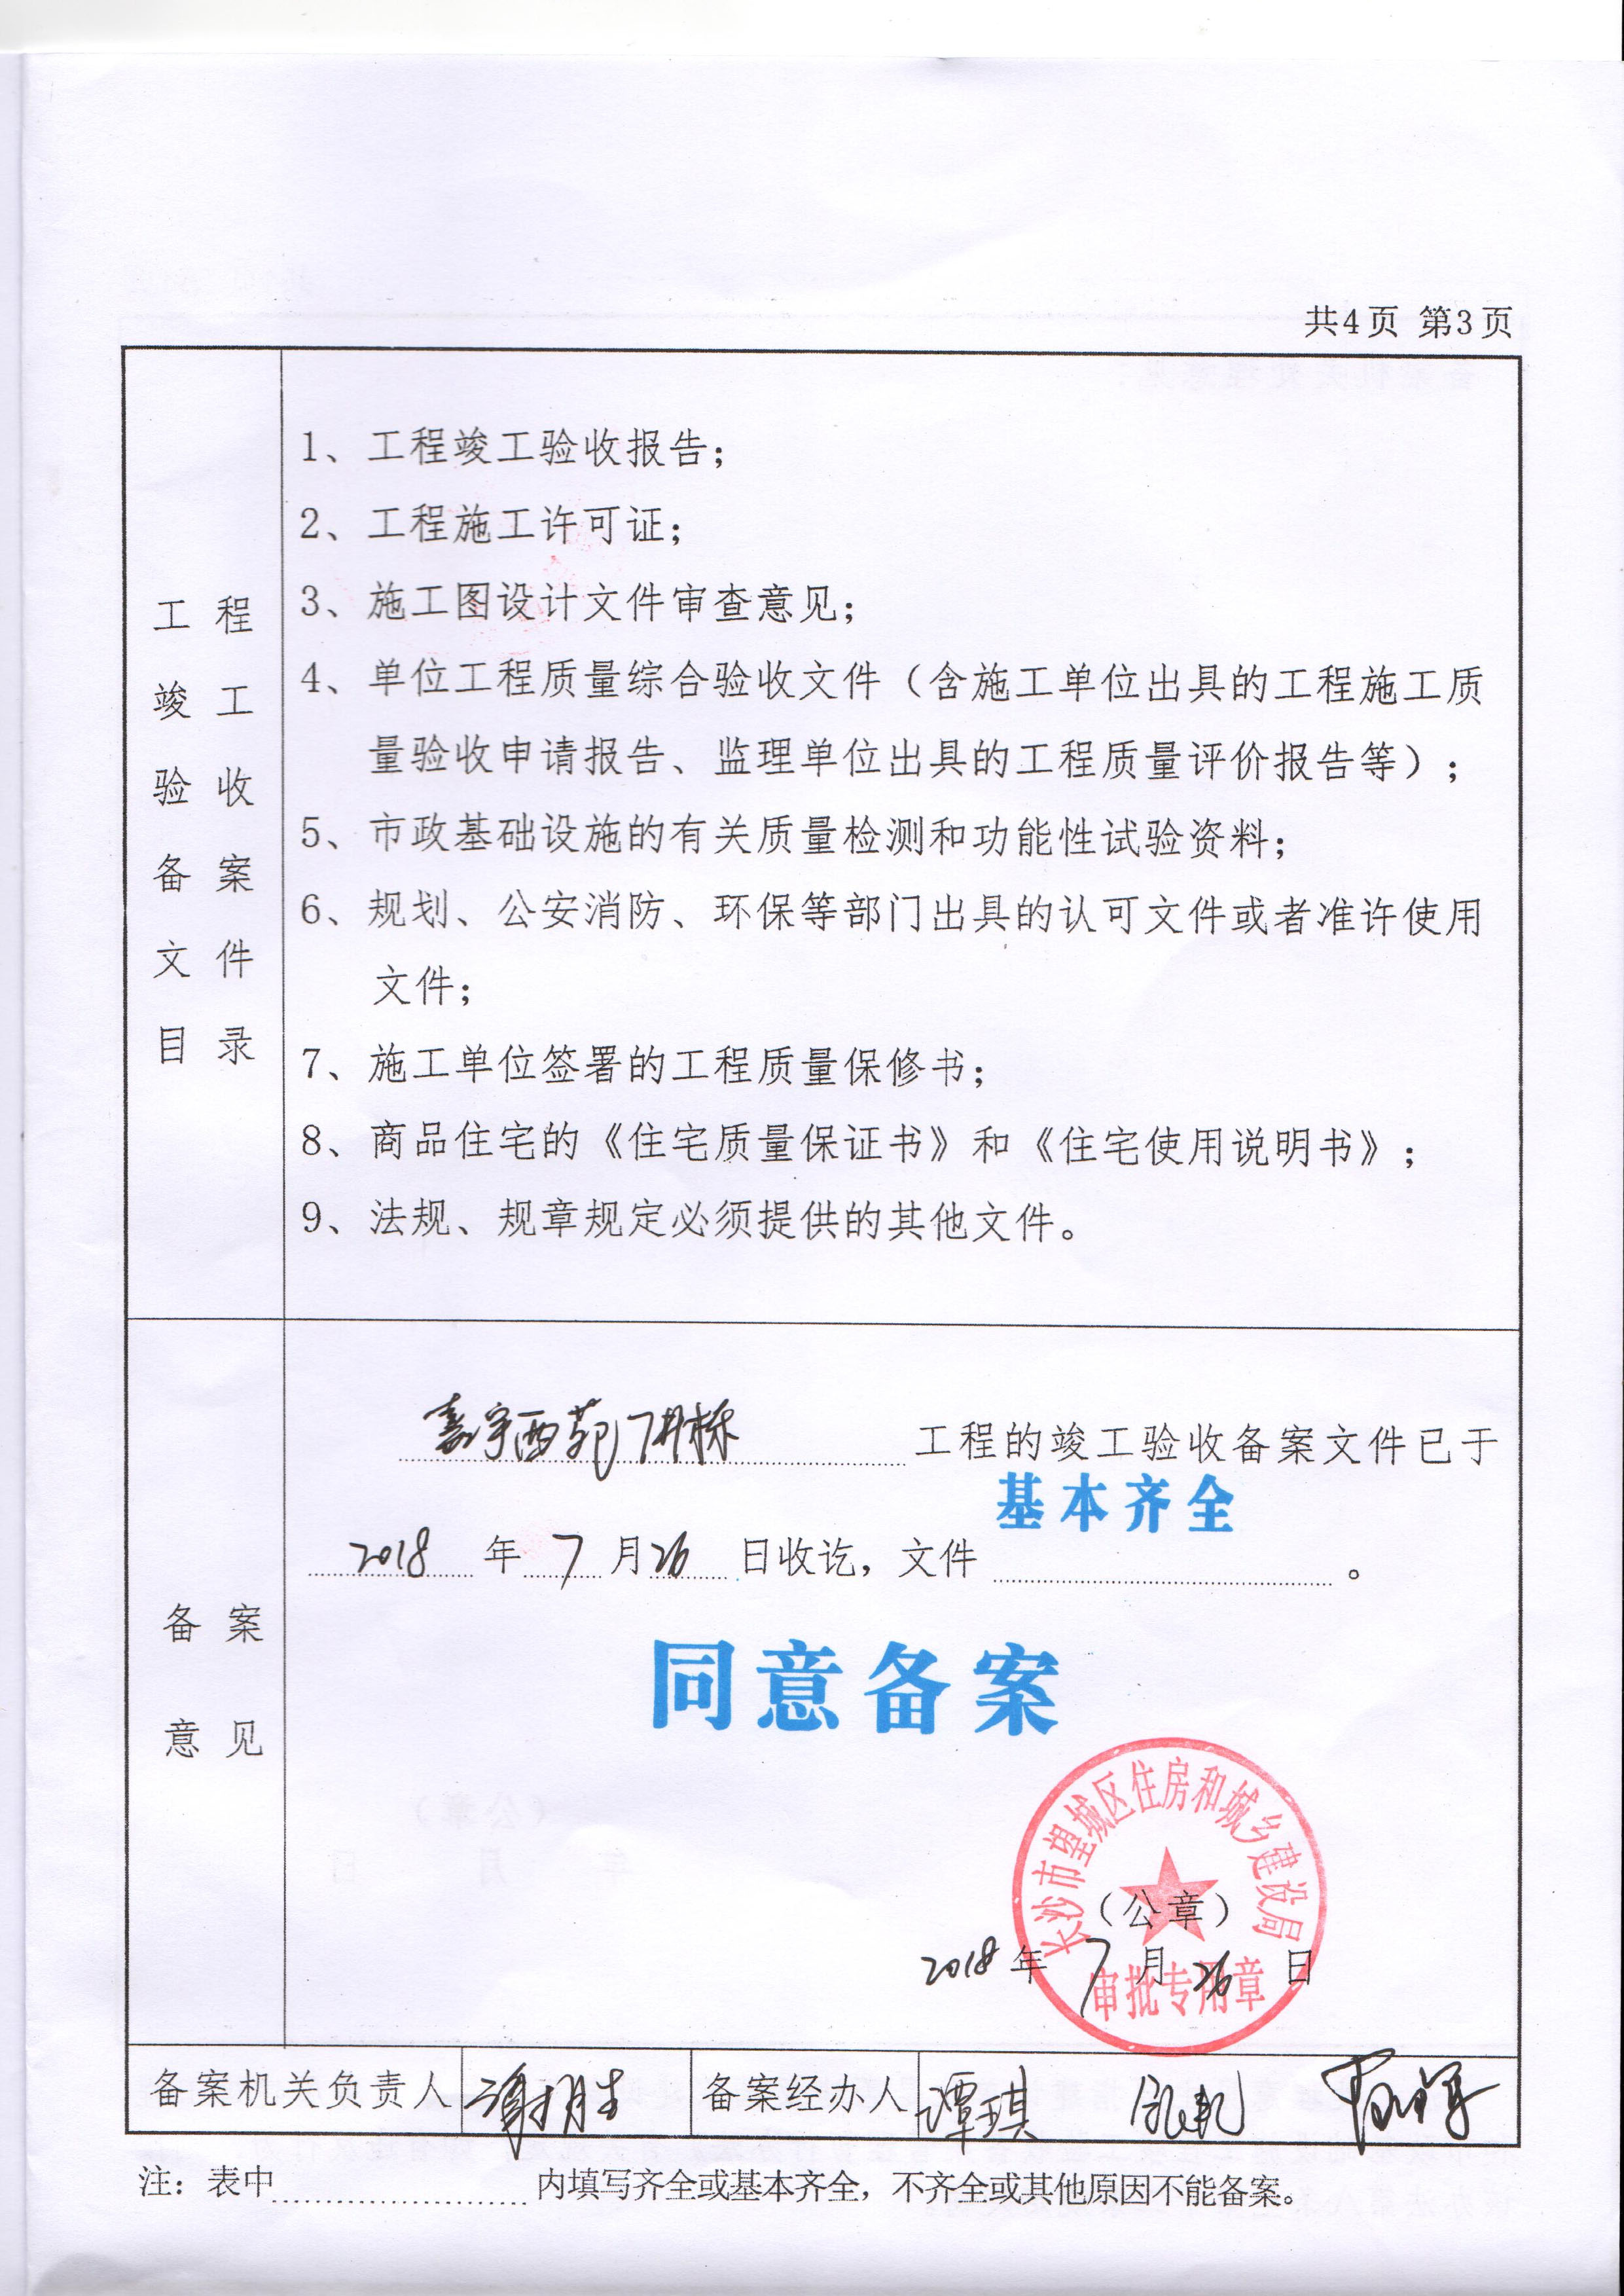 共4页 第3页
工程
竣工
验收
备案
文件
目录
1、工程竣工验收报告；
2、工程施工许可证；
3、施工图设计文件审查意见；
4、单位工程质量综合验收文件（含施工单位出具的工程施工质
量验收申请报告、监理单位出具的工程质量评价报告等）；
5、市政基础设施的有关质量检测和功能性试验资料；
6、规划、公安消防、环保等部门出具的认可文件或者准许使用
文件；
7、施工单位签署的工程质量保修书；
8、商品住宅的《住宅质量保证书》和《住宅使用说明书》；
9、法规、规章规定必须提供的其他文件。
备案
意见
嘉宇西苑7#栋 工程的竣工验收备案文件已于
基本齐全
2018 年 7 月 26 日收讫，文件 。
同意备案
长沙市望城区住房和城乡建设局
（公章）
2018 年 7 月 26 日
审批专用章
备案机关负责人 备案经办人 谭琪
注：表中 内填写齐全或基本齐全，不齐全或其他原因不能备案。